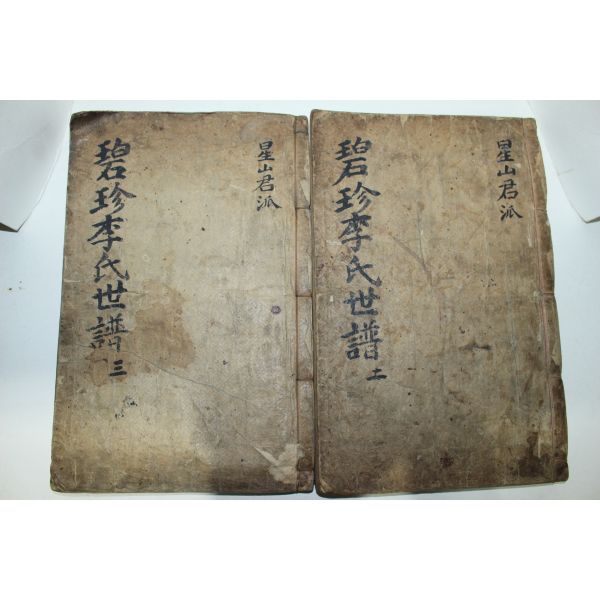 星山君派
碧珍李氏世譜 土
星山君派
碧珍李氏世譜 三